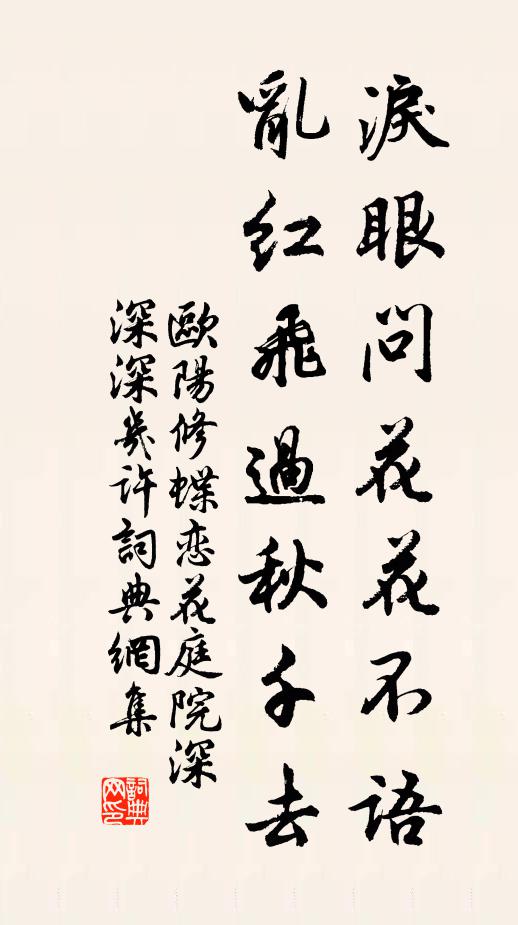 淚眼問花花不語
亂紅飛過秋千去
歐陽修蝶恋花庭院深
深深幾许詞典網集
詞典
网印